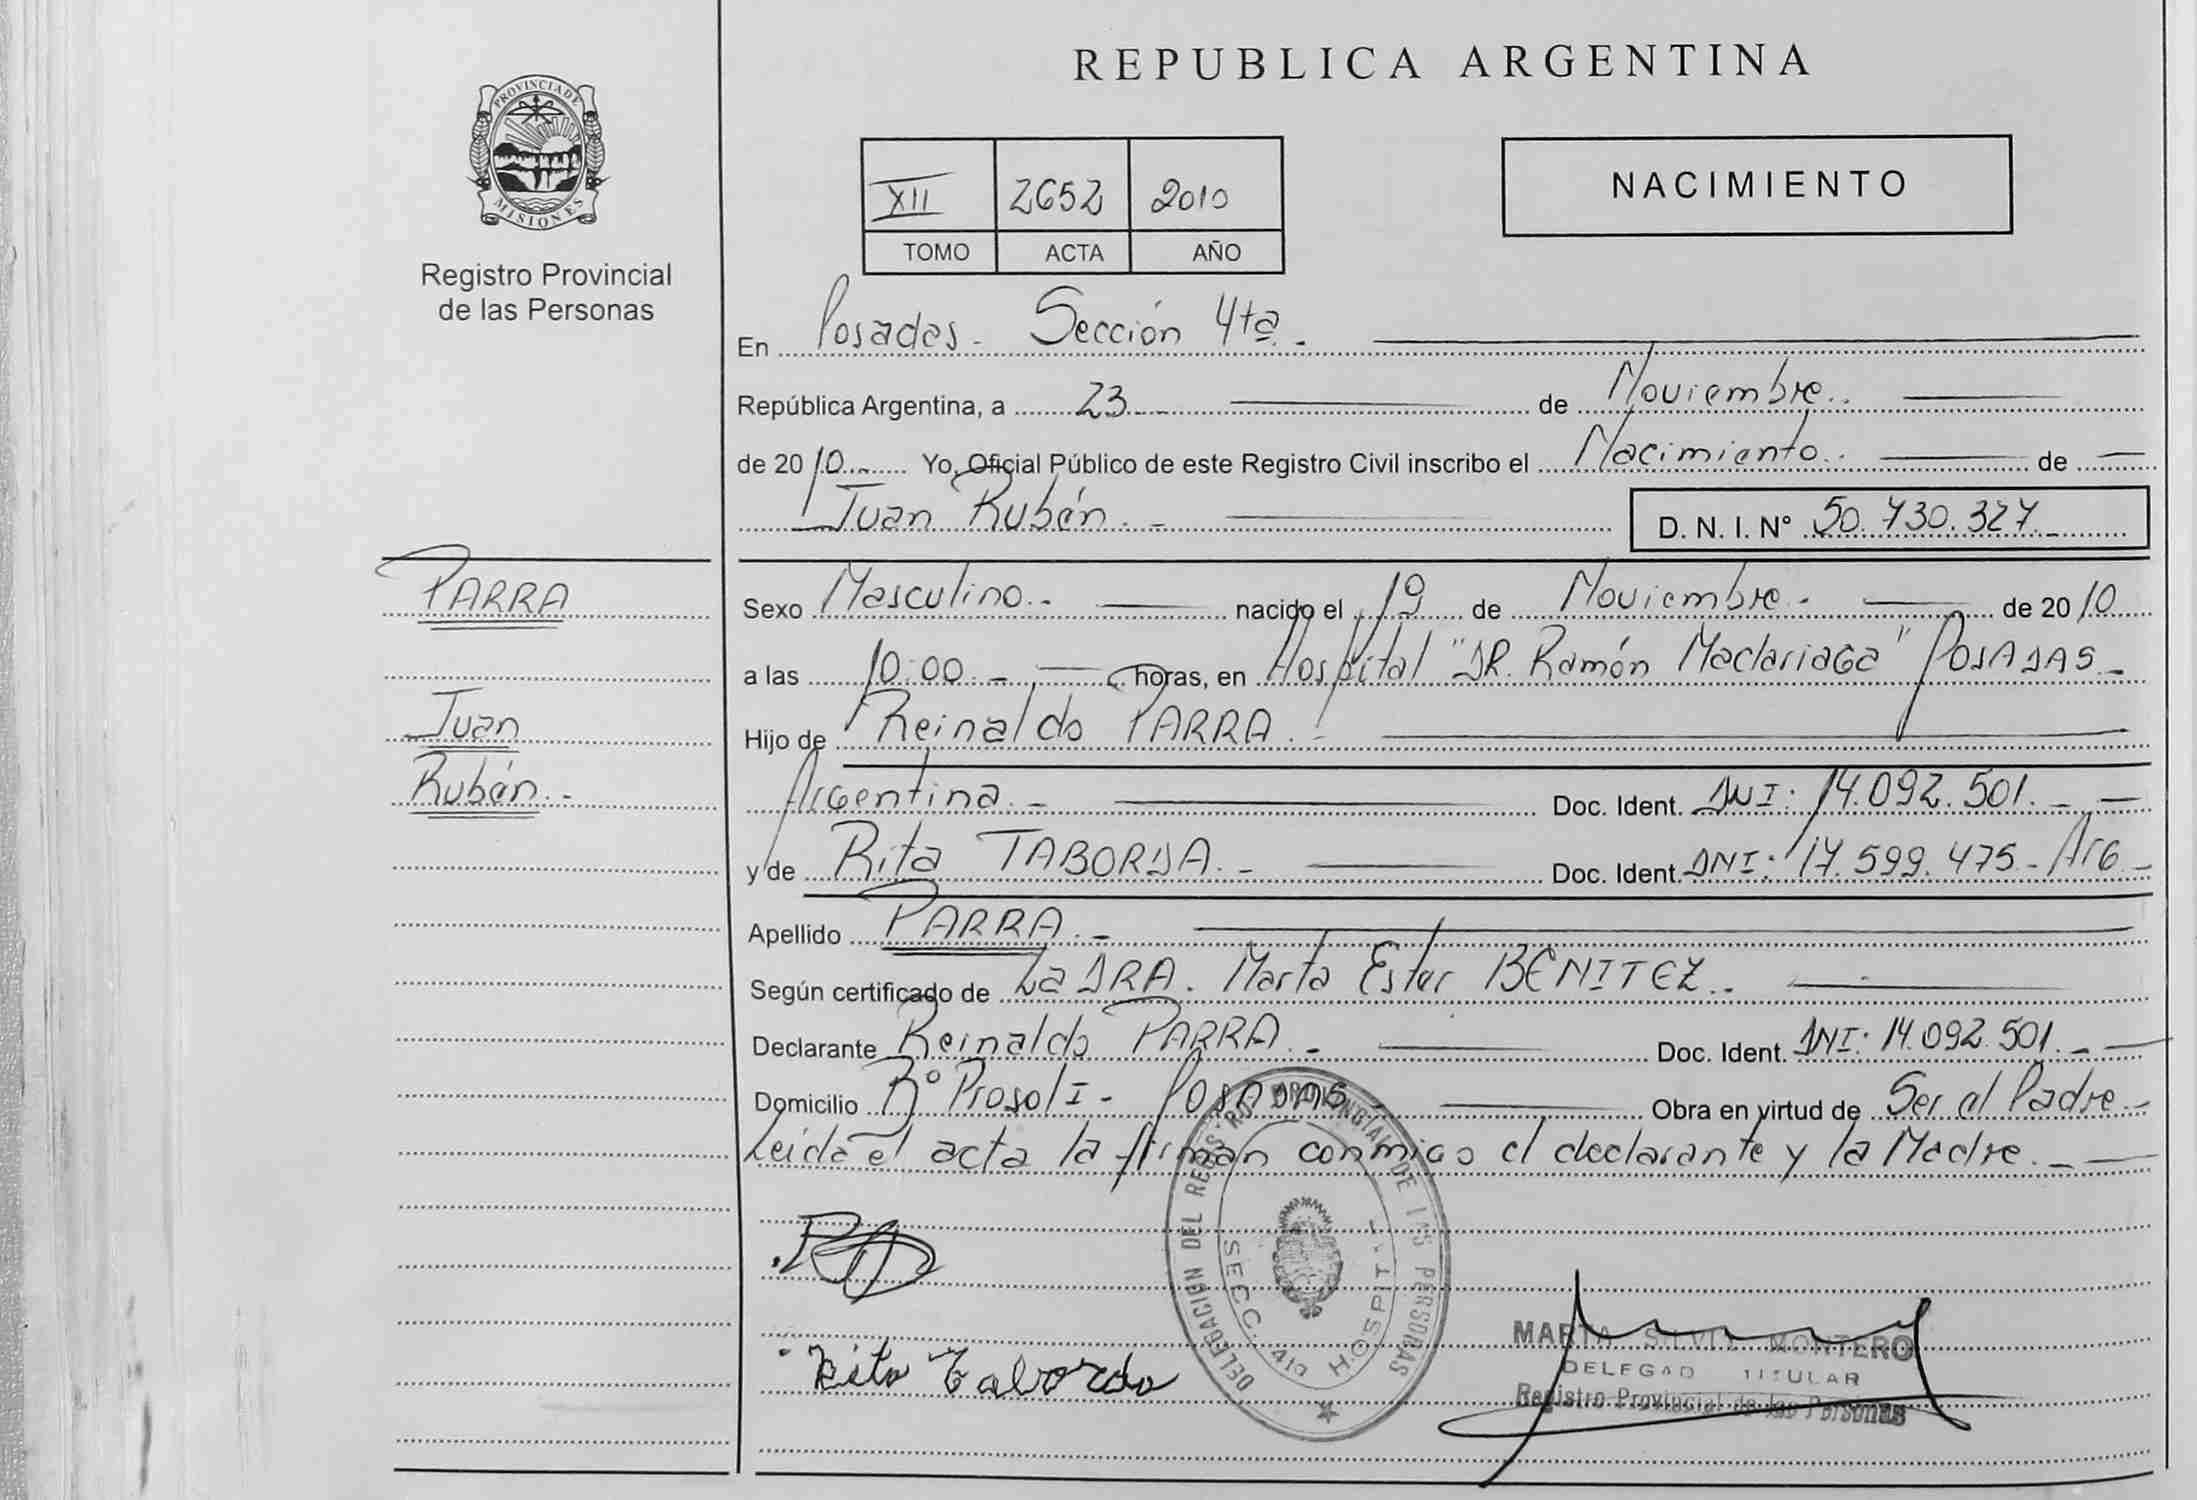 REPUBLICA ARGENTINA
PROVINCIA DE
MISIONES
Registro Provincial
de las Personas
XII 2652 2010
TOMO ACTA AÑO
NACIMIENTO
En Posadas. Sección 4ta.
República Argentina, a 23 de Noviembre.
de 2010 Yo, Oficial Público de este Registro Civil inscribo el Nacimiento. de
Juan Rubén. D. N. I. N° 50.730.327.
PARRA
Juan
Rubén.-
Sexo Masculino.- nacido el 19 de Noviembre.- de 2010
a las 10:00.- horas, en Hospital "DR. Ramón Madariaga" POSADAS-
Hijo de Reinaldo PARRA.-
Argentina.- Doc. Ident. DNI: 14.092.501.-
y de Rita TABORDA.- Doc. Ident. DNI: 17.599.475- Arg-
Apellido PARRA.-
Según certificado de La DRA. Marta Ester BENITEZ.
Declarante Reinaldo PARRA.- Doc. Ident. DNI: 14.092.501.-
Domicilio B° Prosol I- POSADAS Obra en virtud de Ser el Padre-
Leida el acta la firman conmigo el declarante y la Madre.-
DELEGACION DEL REGISTRO PROVINCIAL DE LAS PERSONAS
SECC. 4ta HOSPITAL
Rita Taborda
MARTA SILVIA MONTERO
DELEGADA TITULAR
Registro Provincial de las Personas